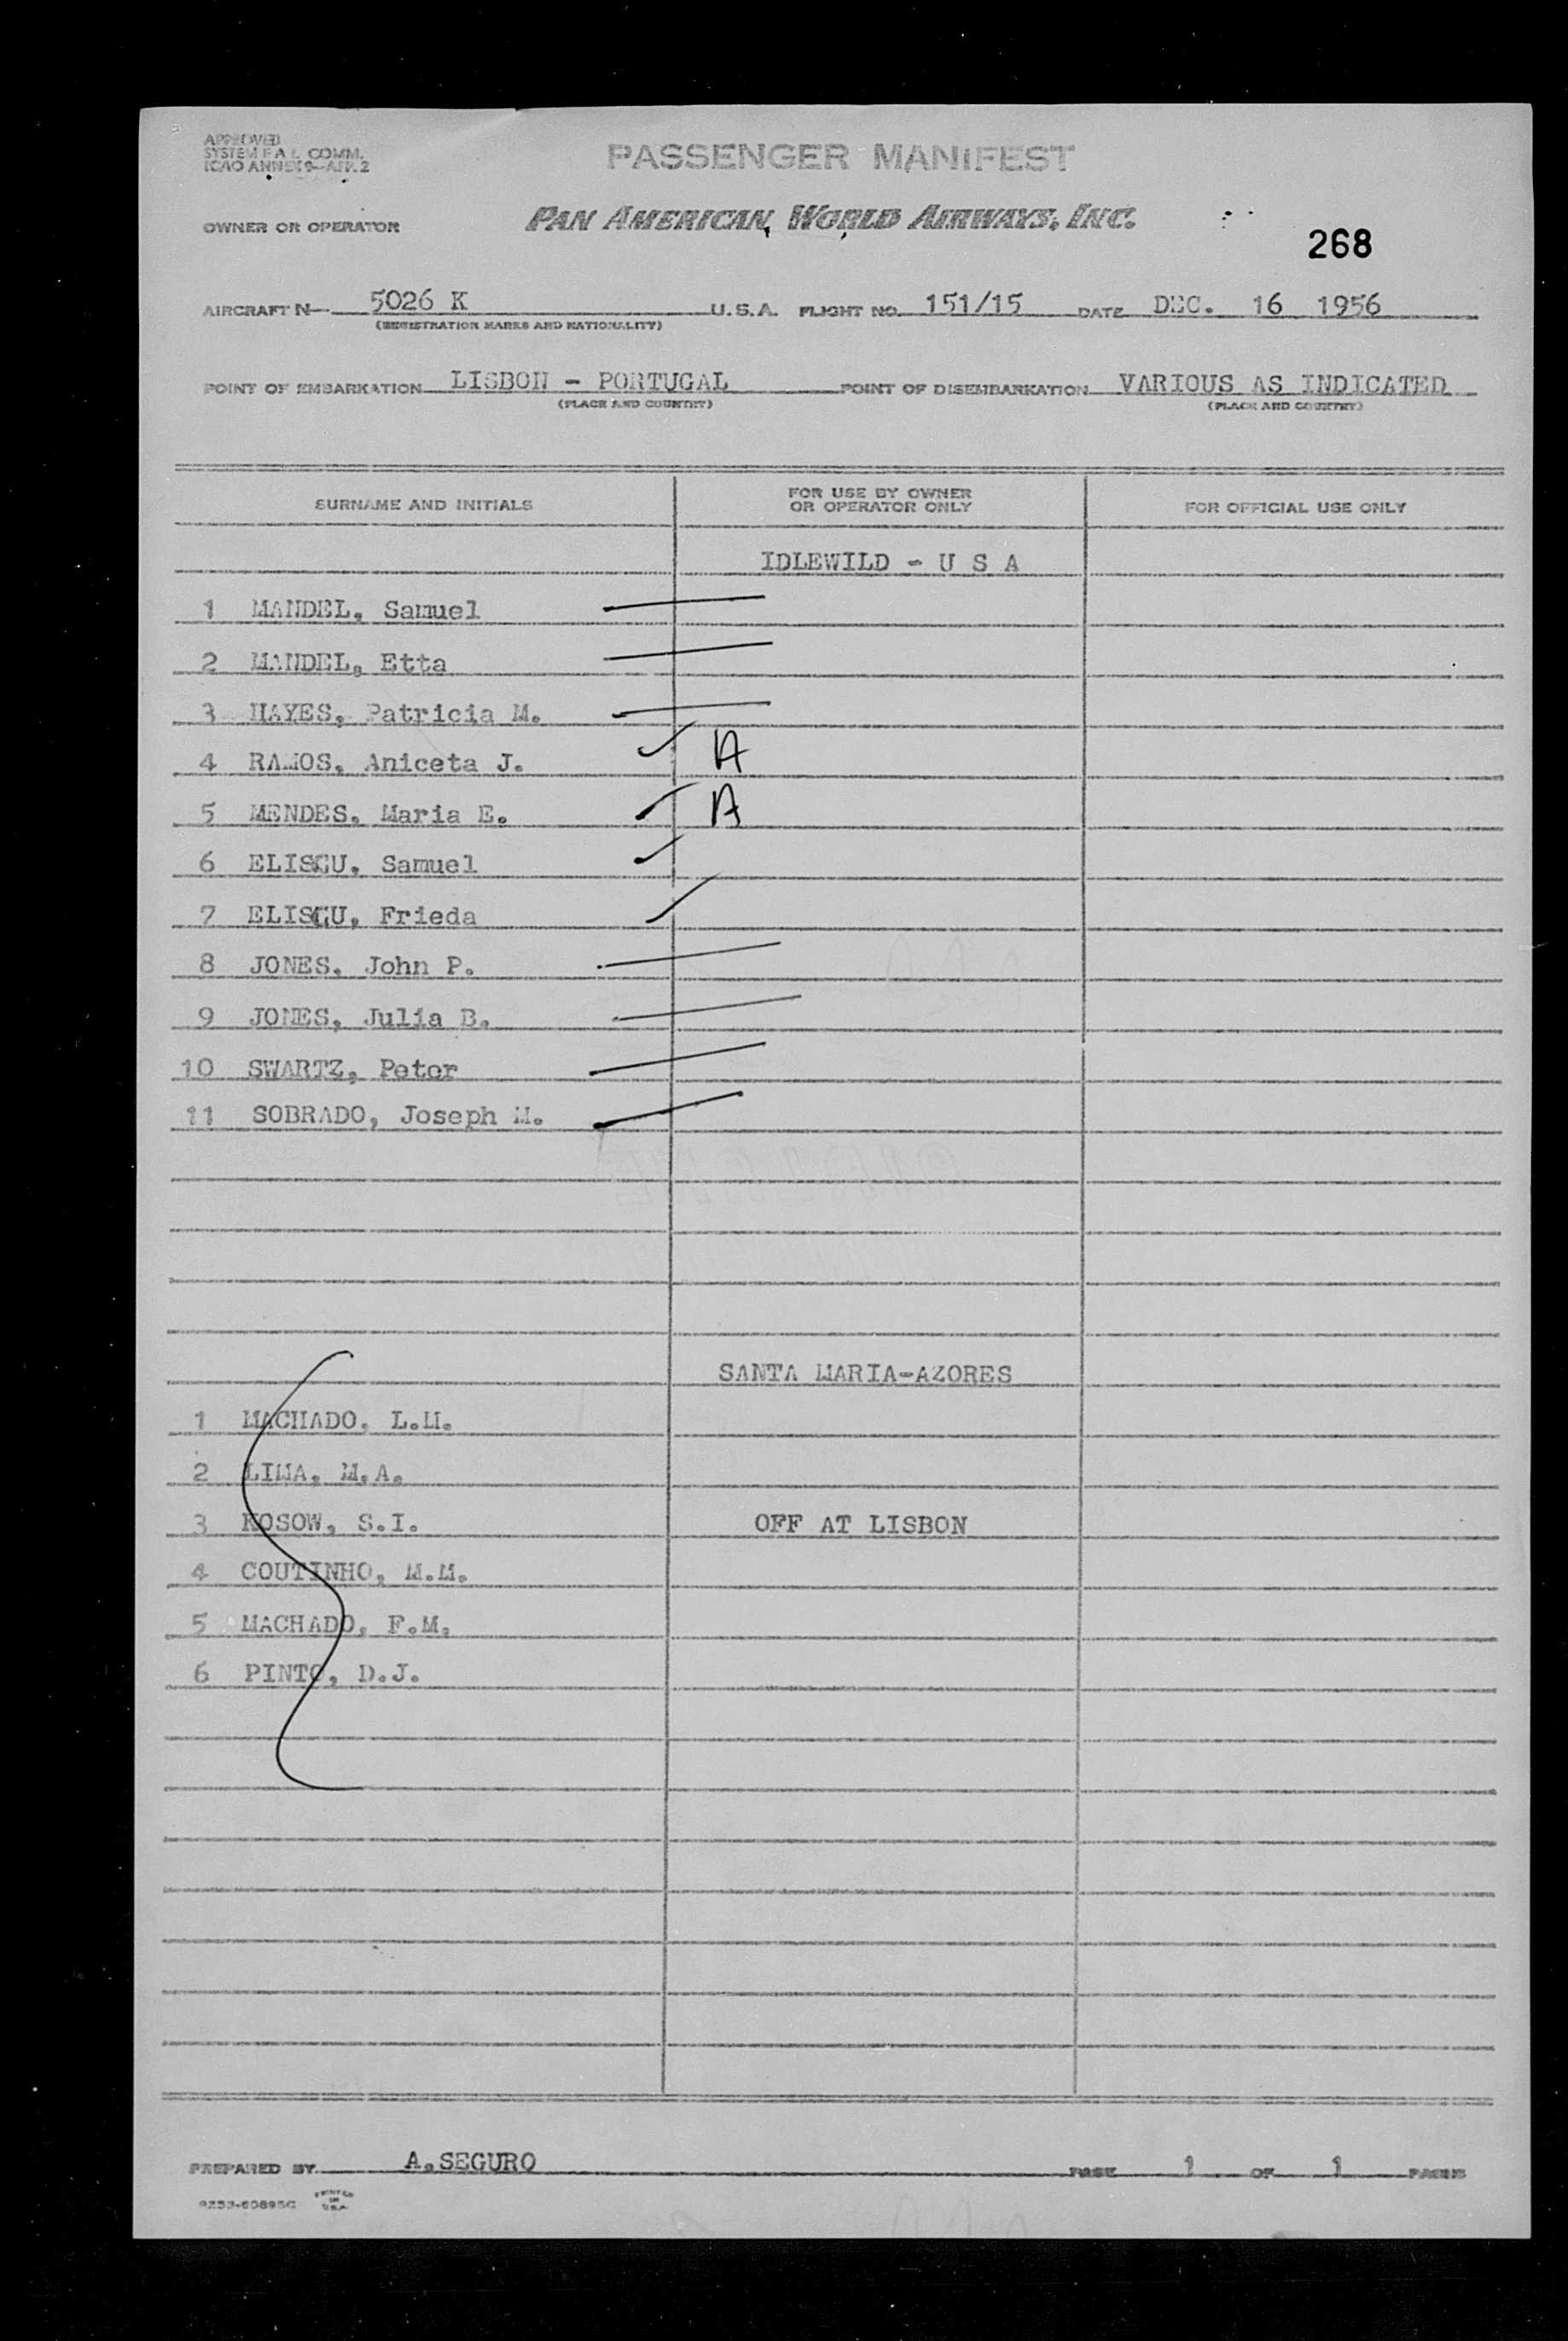 APPROVED
SYSTEM F A L COMM.
ICAO ANNEX 9—APP. 2
PASSENGER MANIFEST
OWNER OR OPERATOR PAN AMERICAN WORLD AIRWAYS, INC.
268
AIRCRAFT N— 5026 K U.S.A. FLIGHT NO. 151/15 DATE DEC. 16 1956
(REGISTRATION MARKS AND NATIONALITY)
POINT OF EMBARKATION LISBON - PORTUGAL POINT OF DISEMBARKATION VARIOUS AS INDICATED
(PLACE AND COUNTRY) (PLACE AND COUNTRY)
SURNAME AND INITIALS FOR USE BY OWNER OR OPERATOR ONLY FOR OFFICIAL USE ONLY
IDLEWILD - U S A
1 MANDEL, Samuel
2 MANDEL, Etta
3 HAYES, Patricia M.
4 RAMOS, Aniceta J. A
5 MENDES, Maria E. A
6 ELISCU, Samuel
7 ELISCU, Frieda
8 JONES, John P.
9 JONES, Julia B.
10 SWARTZ, Peter
11 SOBRADO, Joseph M.
SANTA MARIA-AZORES
1 MACHADO, L.M.
2 LIMA, M.A.
3 KOSOW, S.I. OFF AT LISBON
4 COUTINHO, M.M.
5 MACHADO, F.M.
6 PINTO, D.J.
PREPARED BY A.SEGURO PAGE 1 OF 1 PAGES
PRINTED IN U.S.A.